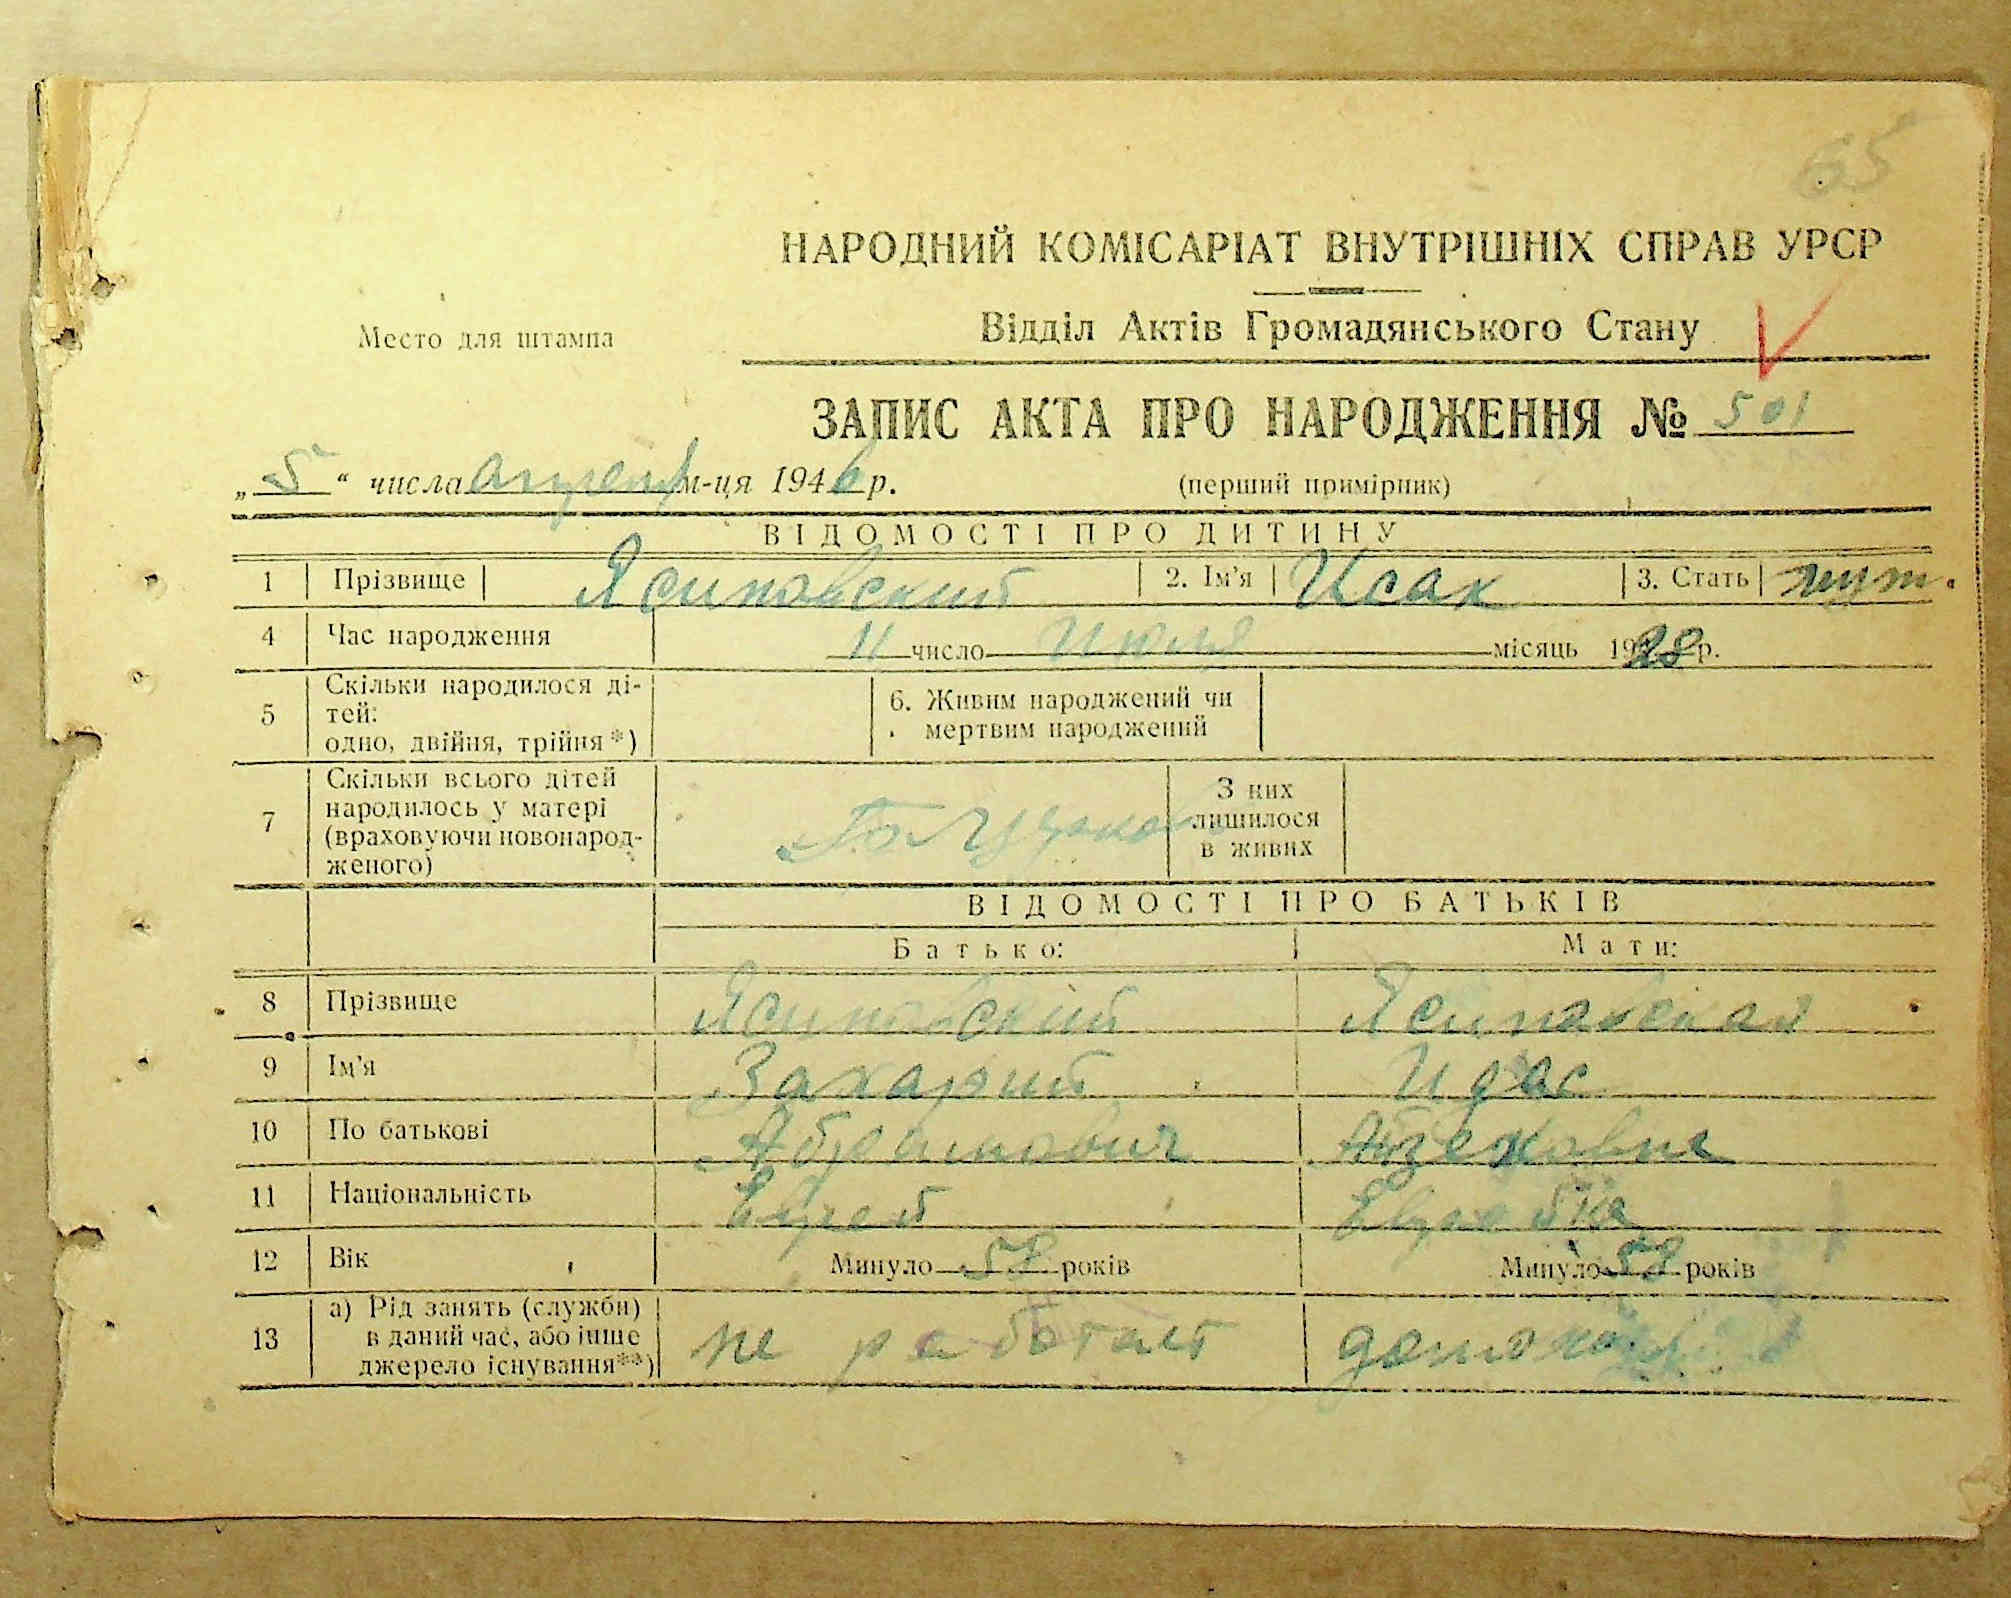 65
НАРОДНИЙ КОМІСАРІАТ ВНУТРІШНІХ СПРАВ УРСР
Место для штампа
Відділ Актів Громадянського Стану
ЗАПИС АКТА ПРО НАРОДЖЕННЯ № 501
„5“ числа апреля м-ця 1946 р. (перший примірник)
ВІДОМОСТІ ПРО ДИТИНУ
1 Прізвище Ясиновский 2. Ім'я Исак 3. Стать муж.
4 Час народження 11 число Июля місяць 1928 р.
5 Скільки народилося ді-
тей:
одно, двійня, трійня*)
6. Живим народжений чи
мертвим народжений
7 Скільки всього дітей
народилось у матері
(враховуючи новонарод-
женого)
З них
лишилося
в живих
ВІДОМОСТІ ПРО БАТЬКІВ
Батько: Мати:
8 Прізвище Ясиновский Ясиновская
9 Ім'я Захарий
10 По батькові Абрамович
11 Національність Еврей Еврейка
12 Вік Минуло 58 років Минуло 58 років
13 а) Рід занять (служби)
в даний час, або інше
джерело існування**)
не работает